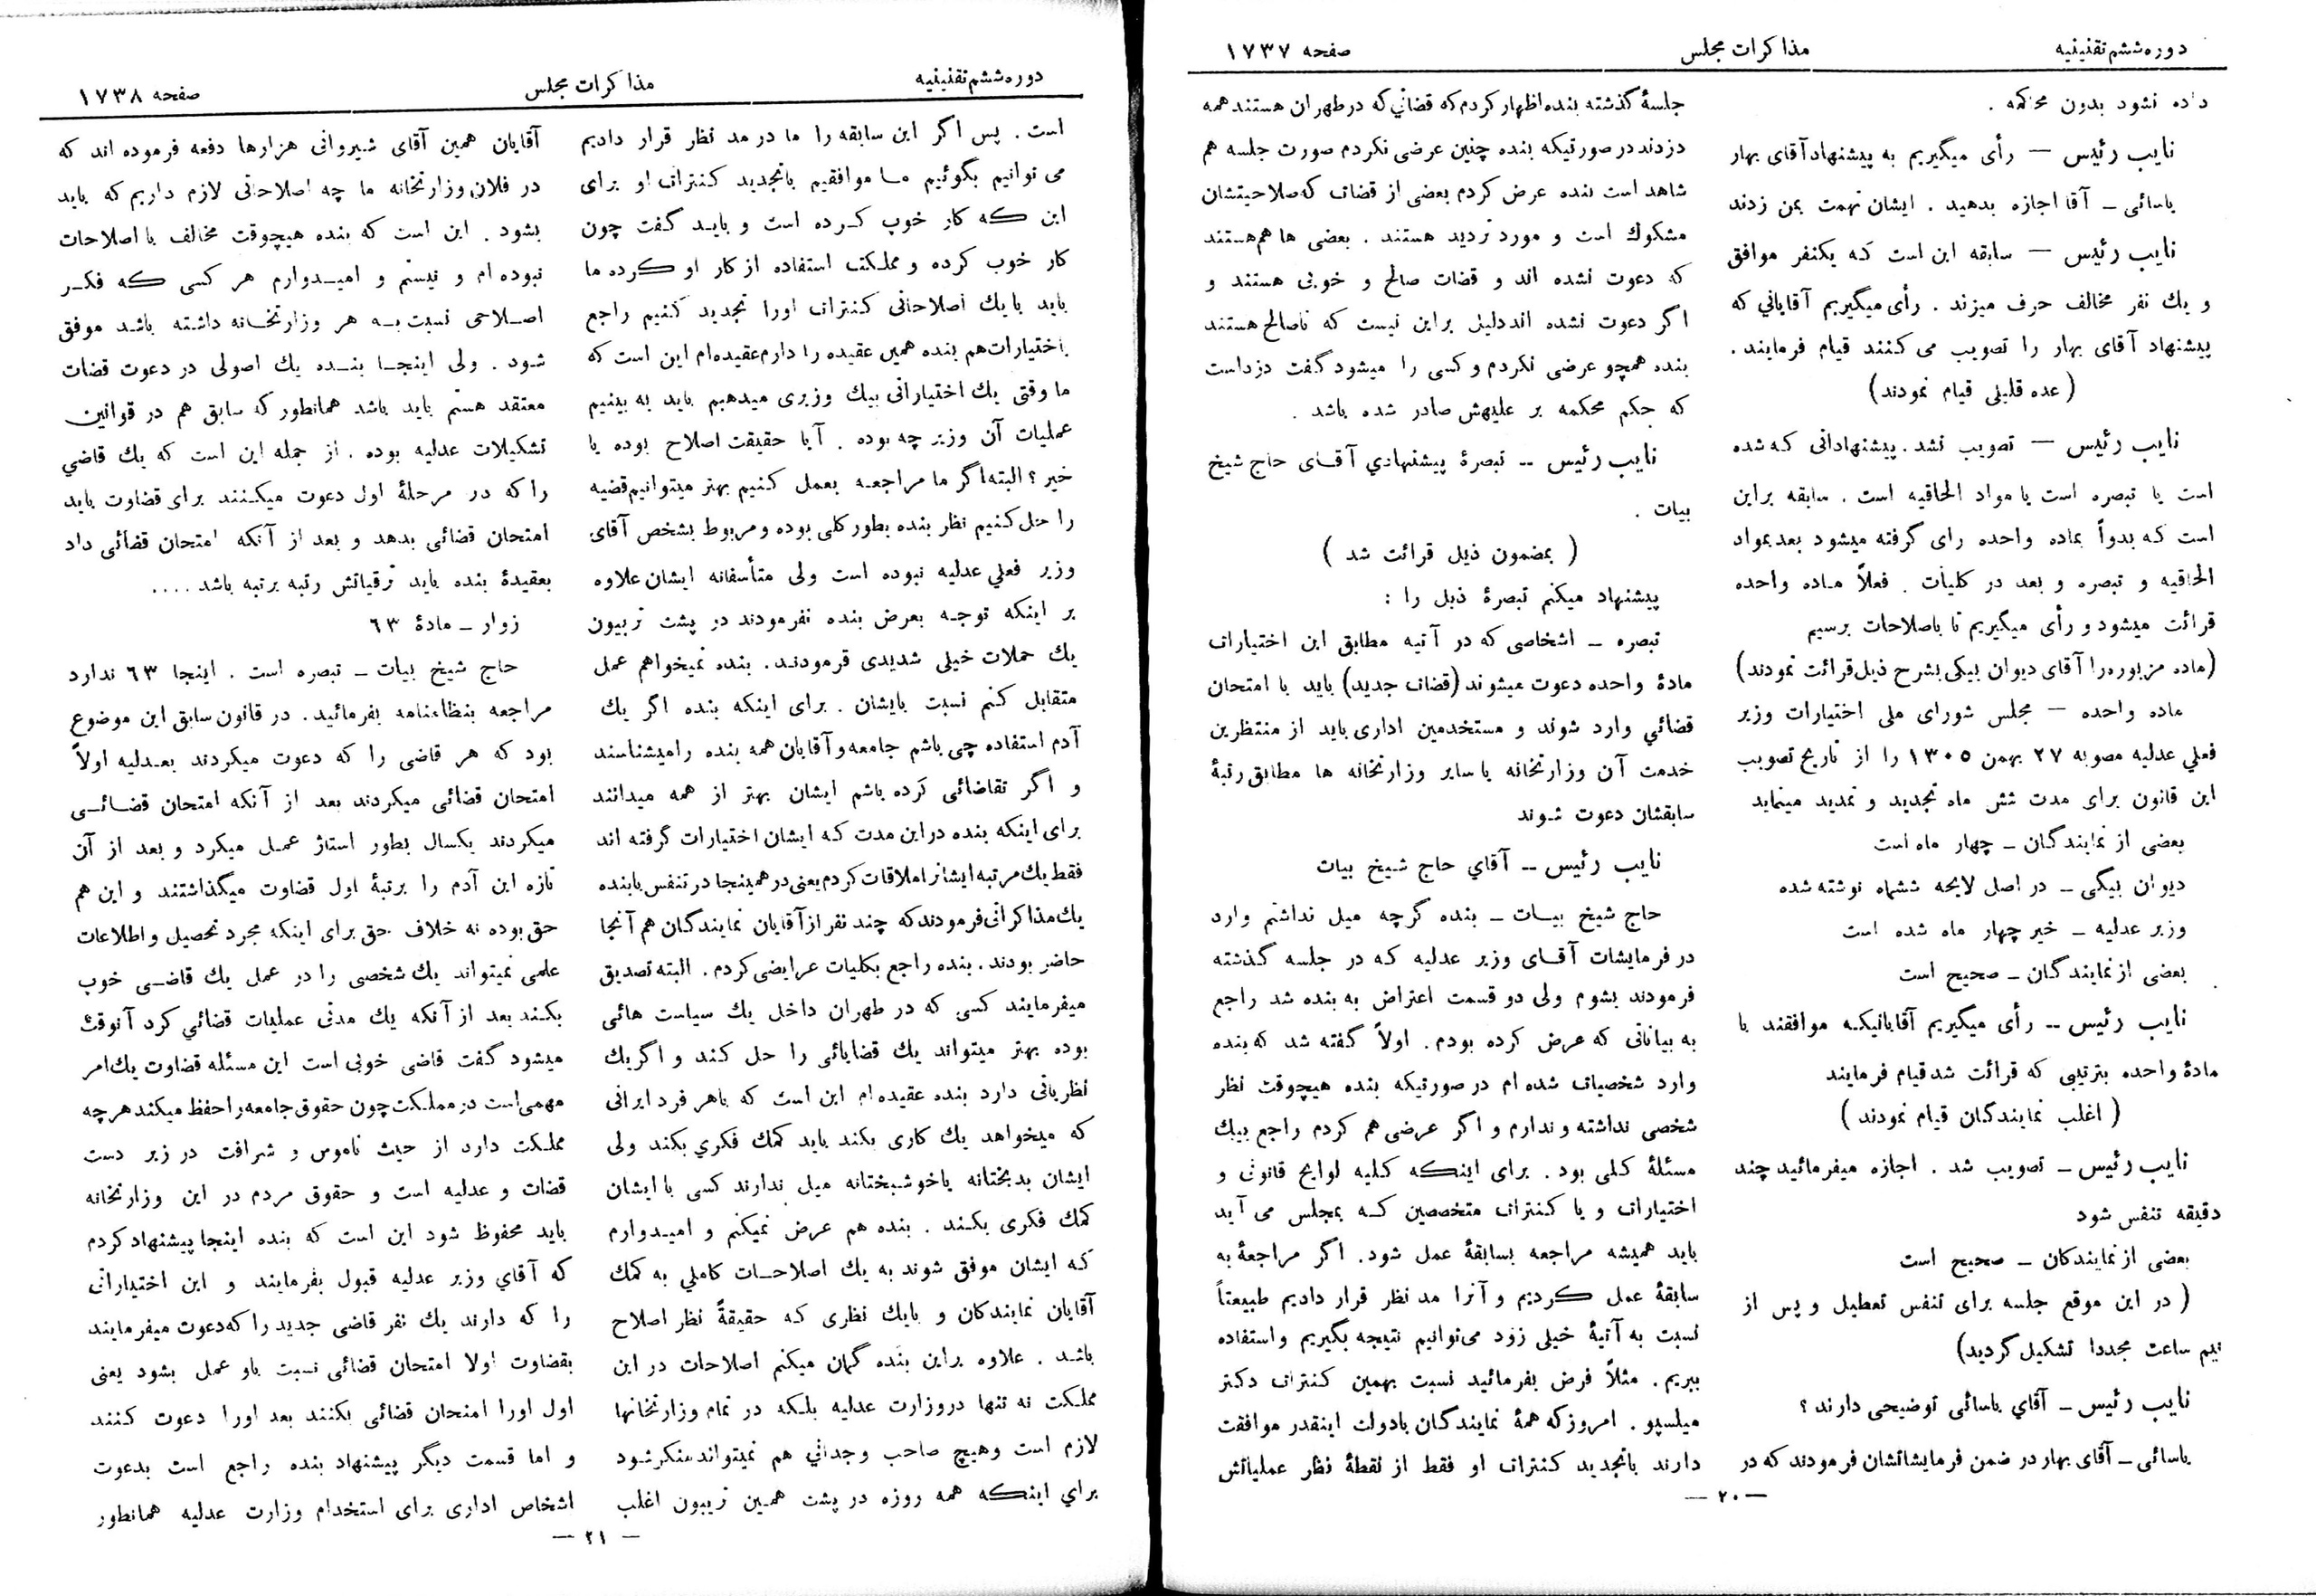 دوره ششم تقنینیه
مذاکرات مجلس
صفحه ۱۷۳۷
داده نشود بدون محاکمه .
نایب رئیس — رأی میگیریم به پیشنهاد آقای بهار
یاسائی ــ آقا اجازه بدهید . ایشان تهمت بمن زدند
نایب رئیس — سابقه این است که یکنفر موافق
و یك نفر مخالف حرف میزند . رأی میگیریم آقایانی که
پیشنهاد آقای بهار را تصویب می کنند قیام فرمایند .
( عده قلیلی قیام نمودند )
نایب رئیس — تصویب نشد . پیشنهاداتی که شده
است یا تبصره است یا مواد الحاقیه است . سابقه براین
است که بدواً بماده واحده رای گرفته میشود بعد بمواد
الحاقیه و تبصره و بعد در کلیات . فعلاً ماده واحده
قرائت میشود و رأی میگیریم تا باصلاحات برسیم
(ماده مزبوره را آقای دیوان بیکی بشرح ذیل قرائت نمودند)
ماده واحده — مجلس شورای ملی اختیارات وزیر
فعلي عدلیه مصوبه ۲۷ بهمن ۱۳۰۵ را از تاریخ تصویب
این قانون برای مدت شش ماه تجدید و تمدید مینماید
بعضی از نمایندگان ــ چهار ماه است
دیوان بیگی ــ در اصل لایحه ششماه نوشته شده
وزیر عدلیه ــ خیر چهار ماه شده است
بعضی از نمایندگان ــ صحیح است
نایب رئیس ــ رأی میگیریم آقایانیکه موافقند با
مادۀ واحده بترتیبی که قرائت شد قیام فرمایند
( اغلب نمایندگان قیام نمودند )
نایب رئیس ــ تصویب شد . اجازه میفرمائید چند
دقیقه تنفس شود
بعضی از نمایندکان ــ صحیح است
( در این موقع جلسه برای تنفس تعطیل و پس از
نیم ساعت مجددا تشکیل گردید)
نایب رئیس ــ آقاي یاسائی توضیحی دارند ؟
یاسائی ــ آقای بهار در ضمن فرمایشاتشان فرمودند که در
جلسهٔ گذشته بنده اظهار کردم که قضاتي که در طهران هستند همه
دزدند در صورتیکه بنده چنین عرضی نکردم صورت جلسه هم
شاهد است بنده عرض کردم بعضی از قضات که صلاحیتشان
مشکوك است و مورد تردید هستند . بعضی ها هم هستند
که دعوت نشده اند و قضات صالح و خوبی هستند و
اگر دعوت نشده اند دلیل براین نیست که ناصالح هستند
بنده همچو عرضی نکردم و کسی را میشود گفت دزد است
که حکم محکمه بر علیهش صادر شده باشد .
نایب رئیس ــ تبصرۀ پیشنهادي آقای حاج شیخ
بیات .
( بمضمون ذیل قرائت شد )
پیشنهاد میکنم تبصرۀ ذیل را :
تبصره ــ اشخاصی که در آتیه مطابق این اختیارات
مادۀ واحده دعوت میشوند (قضات جدید) باید با امتحان
قضائي وارد شوند و مستخدمین اداری باید از منتظرین
خدمت آن وزارتخانه یا سایر وزارتخانه ها مطابق رتبۀ
سابقشان دعوت شوند
نایب رئیس ــ آقاي حاج شیخ بیات
حاج شیخ بیات ــ بنده گرچه میل نداشتم وارد
در فرمایشات آقای وزیر عدلیه که در جلسه گذشته
فرمودند بشوم ولی دو قسمت اعتراض به بنده شد راجع
به بیاناتی که عرض کرده بودم . اولاً گفته شد که بنده
وارد شخصیات شده ام در صورتیکه بنده هیچوقت نظر
شخصی نداشته و ندارم و اگر عرضی هم کردم راجع بیک
مسئلهٔ کلی بود . برای اینکه کلیه لوایح قانونی و
اختیارات و یا کنترات متخصصین که بمجلس می آید
باید همیشه مراجعه بسابقهٔ عمل شود. اگر مراجعهٔ به
سابقهٔ عمل کردیم و آنرا مد نظر قرار دادیم طبیعتاً
نسبت به آتیهٔ خیلی زود می‌توانیم نتیجه بگیریم و استفاده
ببریم . مثلاً فرض بفرمائید نسبت بهمین کنترات دکتر
میلسپو . امروز که همهٔ نمایندگان با دولت اینقدر موافقت
دارند با تجدید کنترات او فقط از نقطهٔ نظر عملیاتش
— ۲۰ —
دوره ششم تقنینیه
مذاکرات مجلس
صفحه ۱۷۳۸
است . پس اگر این سابقه را ما در مد نظر قرار دادیم
می توانیم بگوئیم ما موافقیم با تجدید کنترات او برای
این که کار خوب کرده است و باید گفت چون
کار خوب کرده و مملکت استفاده از کار او کرده ما
باید با یك اصلاحاتی کنترات اورا تجدید کنیم راجع
باختیارات هم بنده همین عقیده را دارم عقیده‌ام این است که
ما وقتی یك اختیاراتی بیك وزیری میدهیم باید به بینیم
عملیات آن وزیر چه بوده . آیا حقیقت اصلاح بوده یا
خیر ؟ البته اگر ما مراجعه بعمل کنیم بهتر میتوانیم قضیه
را حل کنیم نظر بنده بطور کلی بوده و مربوط بشخص آقای
وزیر فعلي عدلیه نبوده است ولی متأسفانه ایشان علاوه
بر اینکه توجه بعرض بنده نفرمودند در پشت تریبون
یك حملات خیلی شدیدی فرمودند . بنده نمیخواهم عمل
متقابل کنم نسبت بایشان . برای اینکه بنده اگر یك
آدم استفاده چی باشم جامعه و آقایان همه بنده را میشناسند
و اگر تقاضائی کرده باشم ایشان بهتر از همه میدانند
برای اینکه بنده در این مدت که ایشان اختیارات گرفته اند
فقط یك مرتبه ایشانرا ملاقات کردم یعنی در همینجا در تنفس با بنده
یك مذاکراتی فرمودند که چند نفر از آقایان نمایندگان هم آنجا
حاضر بودند . بنده راجع بکلیات عرایضی کردم . البته تصدیق
میفرمایند کسی که در طهران داخل یك سیاست هائی
بوده بهتر میتواند یك قضایائی را حل کند و اگر یك
نظریاتی دارد بنده عقیده‌ام این است که با هر فرد ایرانی
که میخواهد یك کاری بکند باید کمك فکري بکند ولی
ایشان بدبختانه یا خوشبختانه میل ندارند کسی با ایشان
کمك فکری بکند . بنده هم عرض نمیکنم و امیدوارم
که ایشان موفق شوند به یك اصلاحات کاملي به کمك
آقایان نمایندکان و بایك نظری که حقیقةً نظر اصلاح
باشد . علاوه براین بنده گمان میکنم اصلاحات در این
مملکت نه تنها در وزارت عدلیه بلکه در تمام وزارتخانها
لازم است وهیچ صاحب وجداني هم نمیتواند منکر شود
براي اینکه همه روزه در پشت همین تریبون اغلب
آقایان همین آقای شیروانی هزارها دفعه فرموده اند که
در فلان وزارتخانه ما چه اصلاحاتی لازم داریم که باید
بشود . این است که بنده هیچوقت مخالف با اصلاحات
نبوده ام و نیستم و امیدوارم هر کسی که فکر
اصلاحی نسبت به هر وزارتخانه داشته باشد موفق
شود . ولی اینجا بنده یك اصولی در دعوت قضات
معتقد هستم باید باشد همانطور که سابق هم در قوانین
تشکیلات عدلیه بوده . از جمله این است که یك قاضي
را که در مرحلهٔ اول دعوت میکنند برای قضاوت باید
امتحان قضائی بدهد و بعد از آنکه امتحان قضائی داد
بعقیدهٔ بنده باید ترقیاتش رتبه برتبه باشد ....
زوار ــ مادهٔ ۶۳
حاج شیخ بیات ــ تبصره است . اینجا ۶۳ ندارد
مراجعه بنظامنامه بفرمائید . در قانون سابق این موضوع
بود که هر قاضی را که دعوت میکردند بعدلیه اولاً
امتحان قضائی میکردند بعد از آنکه امتحان قضائی
میکردند یکسال بطور استاژ عمل میکرد و بعد از آن
تازه این آدم را برتبهٔ اول قضاوت میگذاشتند و این هم
حق بوده نه خلاف حق برای اینکه مجرد تحصیل و اطلاعات
علمی نمیتواند یك شخصی را در عمل یك قاضی خوب
بکند بعد از آنکه یك مدتی عملیات قضائي کرد آنوقت
میشود گفت قاضی خوبی است این مسئله قضاوت یك امر
مهمی است در مملکت چون حقوق جامعه را حفظ میکند هر چه
مملکت دارد از حیث ناموس و شرافت در زیر دست
قضات و عدلیه است و حقوق مردم در این وزارتخانه
باید محفوظ شود این است که بنده اینجا پیشنهاد کردم
که آقاي وزیر عدلیه قبول بفرمایند و این اختیاراتی
را که دارند یك نفر قاضی جدید را که دعوت میفرمایند
بقضاوت اولا امتحان قضائی نسبت باو عمل بشود یعنی
اول اورا امتحان قضائی بکنند بعد اورا دعوت کنند
و اما قسمت دیگر پیشنهاد بنده راجع است بدعوت
اشخاص اداری برای استخدام وزارت عدلیه همانطور
— ۲۱ —